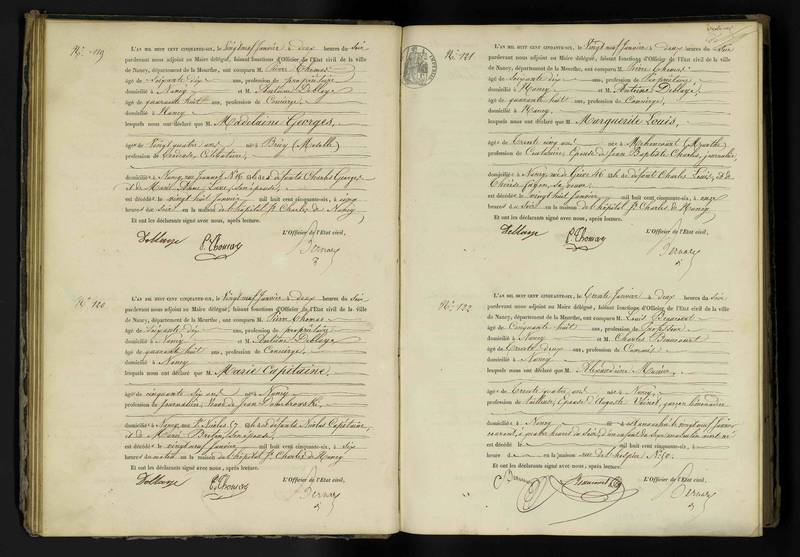 N° 119
L'AN MIL HUIT CENT CINQUANTE-SIX, le Vingt neuf Janvier à deux heures du Soir
pardevant nous adjoint au Maire délégué, faisant fonctions d'Officier de l'état civil de la ville
de Nancy, département de la Meurthe, ont comparu M. Pierre Thomas
âgé de Soixante dix ans, profession de propriétaire
domicilié à Nancy et M. Antoine Deblaye
âgé de quarante huit ans, profession de Concierge,
domicilié à Nancy
lesquels nous ont déclaré que M. Madelaine Georges,
âgée de Vingt quatre ans née à Briey (Moselle)
profession de Célibataire,
domiciliée à Nancy, N° 16 défunts Charles Georges
et de Marie Anne son épouse,
est décédée le Vingt huit Janvier mil huit cent cinquante-six, à cinq
heures du Soir en la maison de l'hôpital St Charles de Nancy
Et ont les déclarants signé avec nous, après lecture.
L'Officier de l'État civil,
Deblaye
P. Thomas
Bernard
N° 120
L'AN MIL HUIT CENT CINQUANTE-SIX, le Vingt neuf Janvier à deux heures du Soir
pardevant nous adjoint au Maire délégué, faisant fonctions d'Officier de l'état civil de la ville
de Nancy, département de la Meurthe, ont comparu M. Pierre Thomas
âgé de Soixante dix ans, profession de propriétaire
domicilié à Nancy et M. Antoine Deblaye
âgé de quarante huit ans, profession de Concierge,
domicilié à Nancy
lesquels nous ont déclaré que M. Marie Capitaine,
âgée de cinquante six ans née à Nancy
profession de Journalière, Veuve de Jean Dombrowski,
domiciliée à Nancy St Nicolas 67 défunts Nicolas Capitaine,
et de Marie son épouse,
est décédée le Vingt neuf Janvier mil huit cent cinquante-six, à Six
heures du matin en la maison de l'hôpital St Charles de Nancy
Et ont les déclarants signé avec nous, après lecture.
L'Officier de l'État civil,
Deblaye
P. Thomas
Bernard
N° 121
L'AN MIL HUIT CENT CINQUANTE-SIX, le Vingt neuf Janvier à deux heures du Soir
pardevant nous adjoint au Maire délégué, faisant fonctions d'Officier de l'état civil de la ville
de Nancy, département de la Meurthe, ont comparu M. Pierre Thomas
âgé de Soixante dix ans, profession de Propriétaire,
domicilié à Nancy et M. Antoine Deblaye
âgé de quarante huit ans, profession de Concierge,
domicilié à Nancy,
lesquels nous ont déclaré que M. Marguerite Louis,
âgée de Trente cinq ans née à (Meurthe)
profession de Couturière, Epouse de Jean Baptiste Charles, journalier,
domiciliée à Nancy, 46 défunt Charles Louis, et de
Thérèse sa veuve
est décédée le Vingt huit Janvier mil huit cent cinquante-six, à onze
heures du Soir en la maison de l'hôpital St Charles de Nancy
Et ont les déclarants signé avec nous, après lecture.
L'Officier de l'État civil,
Deblaye
P. Thomas
Bernard
N° 122
L'AN MIL HUIT CENT CINQUANTE-SIX, le Trente Janvier à deux heures du Soir
pardevant nous adjoint au Maire délégué, faisant fonctions d'Officier de l'état civil de la ville
de Nancy, département de la Meurthe, ont comparu M. Louis
âgé de Cinquante huit ans, profession de Professeur
domicilié à Nancy et M. Charles
âgé de Trente deux ans, profession de Commis
domicilié à Nancy
lesquels nous ont déclaré que M. Alexandrine
âgée de Trente quatre ans née à Nancy,
profession de Tailleuse, Epouse d'Auguste garçon limonadier
domiciliée à Nancy est accouchée le vingt neuf Janvier
courant, à quatre heures du Soir, d'un enfant du Sexe masculin
est décédé le mil huit cent cinquante-six, à
heures en la maison rue N° 50.
Et ont les déclarants signé avec nous, après lecture.
L'Officier de l'État civil,
Bernard